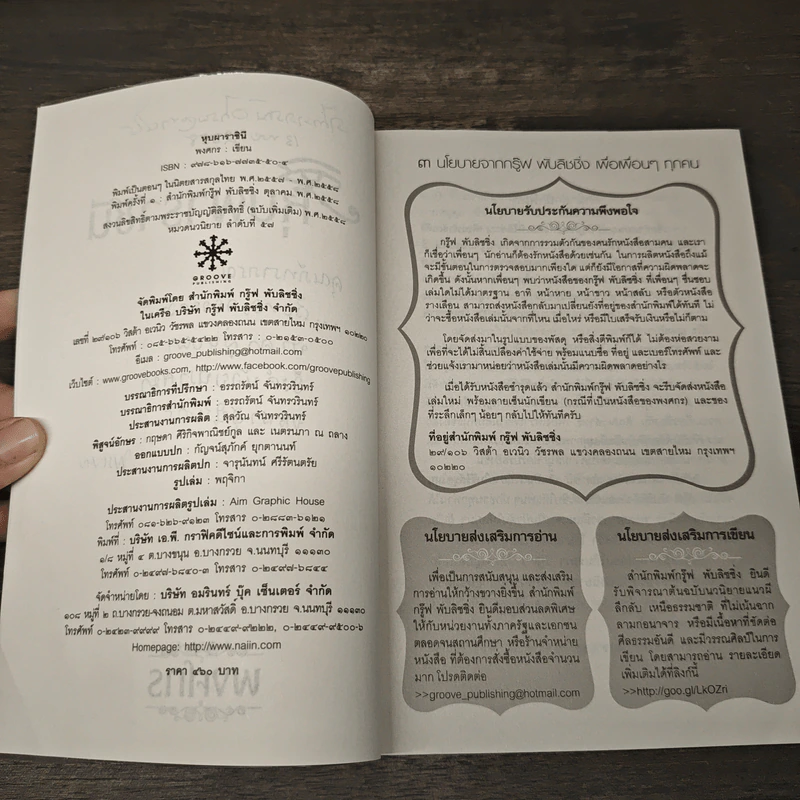 หุบผาราชินี
พงศกร : เขียน
ISBN : ๙๗๘-๖๑๖-๗๗๓๕-๕๐-๔
พิมพ์เป็นตอนๆ ในนิตยสารสกุลไทย พ.ศ.๒๕๕๗ - พ.ศ.๒๕๕๘
พิมพ์ครั้งที่ ๑ : สำนักพิมพ์กรู๊ฟ พับลิชชิ่ง ตุลาคม พ.ศ.๒๕๕๘
สงวนลิขสิทธิ์ตามพระราชบัญญัติลิขสิทธิ์ (ฉบับเพิ่มเติม) พ.ศ.๒๕๕๘
หมวดนวนิยาย ลำดับที่ ๕๗
GROOVE
PUBLISHING
จัดพิมพ์โดย สำนักพิมพ์ กรู๊ฟ พับลิชชิ่ง
ในเครือ บริษัท กรู๊ฟ พับลิชชิ่ง จำกัด
เลขที่ ๒๙/๑๐๖ วิสต้า อเวนิว วัชรพล แขวงคลองถนน เขตสายไหม กรุงเทพฯ ๑๐๒๒๐
โทรศัพท์ : ๐๘๕-๖๖๕-๕๔๒๒ โทรสาร : ๐-๒๑๕๓-๐๕๐๐
อีเมล : groove_publishing@hotmail.com
เว็บไซต์ : www.groovebooks.com, http://www.facebook.com/groovepublishing
บรรณาธิการที่ปรึกษา : อรรถรัตน์ จันทรวรินทร์
บรรณาธิการสำนักพิมพ์ : อรรถรัตน์ จันทรวรินทร์
ประสานงานการผลิต : สุลวัณ จันทรวรินทร์
พิสูจน์อักษร : กฤษดา ศิริกิจพาณิชย์กูล และ เนตรนภา ณ ถลาง
ออกแบบปก : กัญจน์สุภักค์ ยุกตานนท์
ประสานงานการผลิตปก : จารุนันทน์ ศรีรัตนตรัย
รูปเล่ม : พฤจิกา
ประสานงานการผลิตรูปเล่ม : Aim Graphic House
โทรศัพท์ ๐๘๑-๖๒๖-๙๑๒๓ โทรสาร ๐-๒๘๘๓-๖๑๒๑
พิมพ์ที่ : บริษัท เอ.พี. กราฟิคดีไซน์และการพิมพ์ จำกัด
๑/๘ หมู่ที่ ๔ ต.บางขนุน อ.บางกรวย จ.นนทบุรี ๑๑๑๓๐
โทรศัพท์ ๐-๒๔๙๗-๖๘๔๐-๓ โทรสาร ๐-๒๔๙๗-๖๘๔๔
จัดจำหน่ายโดย : บริษัท อมรินทร์ บุ๊ค เซ็นเตอร์ จำกัด
๑๐๘ หมู่ที่ ๒ ถ.บางกรวย-จงถนอม ต.มหาสวัสดิ์ อ.บางกรวย จ.นนทบุรี ๑๑๑๓๐
โทรศัพท์ ๐-๒๔๒๓-๙๙๙๙ โทรสาร ๐-๒๔๔๙-๙๒๒๒, ๐-๒๔๔๙-๙๕๐๐-๖
Homepage: http://www.naiin.com
ราคา ๔๖๐ บาท
๓ นโยบายจากกรู๊ฟ พับลิชชิ่ง เพื่อเพื่อนๆ ทุกคน
นโยบายรับประกันความพึงพอใจ
กรู๊ฟ พับลิชชิ่ง เกิดจากการรวมตัวกันของคนรักหนังสือสามคน และเรา
ก็เชื่อว่าเพื่อนๆ นักอ่านก็ต้องรักหนังสือด้วยเช่นกัน ในการผลิตหนังสือถึงแม้
จะมีขั้นตอนในการตรวจสอบมากเพียงใด แต่ก็ยังมีโอกาสที่ความผิดพลาดจะ
เกิดขึ้น ดังนั้นหากเพื่อนๆ พบว่าหนังสือของกรู๊ฟ พับลิชชิ่ง ที่เพื่อนๆ ชื่นชอบ
เล่มใดไม่ได้มาตรฐาน อาทิ หน้าหาย หน้าขาว หน้าสลับ หรือตัวหนังสือ
รางเลือน สามารถส่งหนังสือเล่มดังกล่าวมาเปลี่ยนยังที่อยู่ของสำนักพิมพ์ได้ทันที ไม่
ว่าจะซื้อหนังสือเล่มนั้นจากที่ไหน เมื่อไหร่ หรือมีใบเสร็จรับเงินหรือไม่ก็ตาม
โดยจัดส่งมาในรูปแบบของพัสดุ หรือสิ่งตีพิมพ์ก็ได้ ไม่ต้องห่อสวยงาม
เพื่อที่จะได้ไม่สิ้นเปลืองค่าใช้จ่าย พร้อมแนบชื่อ ที่อยู่ และเบอร์โทรศัพท์ และ
ช่วยแจ้งเรามาหน่อยว่าหนังสือเล่มนั้นมีความผิดพลาดอย่างไร
เมื่อได้รับหนังสือชำรุดแล้ว สำนักพิมพ์กรู๊ฟ พับลิชชิ่ง จะรีบจัดส่งหนังสือ
เล่มใหม่ พร้อมลายเซ็นนักเขียน (กรณีที่เป็นหนังสือของพงศกร) และของ
ที่ระลึกเล็กๆ น้อยๆ กลับไปให้ทันทีครับ
ที่อยู่สำนักพิมพ์ กรู๊ฟ พับลิชชิ่ง
๒๙/๑๐๖ วิสต้า อเวนิว วัชรพล แขวงคลองถนน เขตสายไหม กรุงเทพฯ
๑๐๒๒๐
นโยบายส่งเสริมการอ่าน
เพื่อเป็นการสนับสนุน และส่งเสริม
การอ่านให้กว้างขวางยิ่งขึ้น สำนักพิมพ์
กรู๊ฟ พับลิชชิ่ง ยินดีมอบส่วนลดพิเศษ
ให้กับหน่วยงานทั้งภาครัฐและเอกชน
ตลอดจนสถานศึกษา หรือร้านจำหน่าย
หนังสือ ที่ต้องการสั่งซื้อหนังสือจำนวน
มาก โปรดติดต่อ
>>groove_publishing@hotmail.com
นโยบายส่งเสริมการเขียน
สำนักพิมพ์กรู๊ฟ พับลิชชิ่ง ยินดี
รับพิจารณาต้นฉบับนวนิยายแนวผี
ลึกลับ เหนือธรรมชาติ ที่ไม่เน้นฉาก
ลามกอนาจาร หรือมีเนื้อหาที่ขัดต่อ
ศีลธรรมอันดี และมีวรรณศิลป์ในการ
เขียน โดยสามารถอ่าน รายละเอียด
เพิ่มเติมได้ที่ลิงก์นี้
>>http://goo.gl/LkOZri